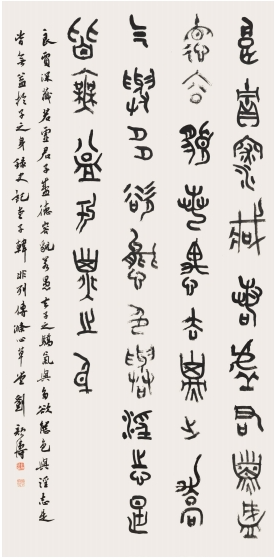 良賈深藏若虛君子盛
德容貌若愚去子之驕
气與多欲態色與淫志是
皆無益於子之身
良賈深藏若虛君子盛德容貌若愚去子之驕氣與多欲態色與淫志是
皆無益於子之身錄史記老子韓非列傳滌心草堂劉